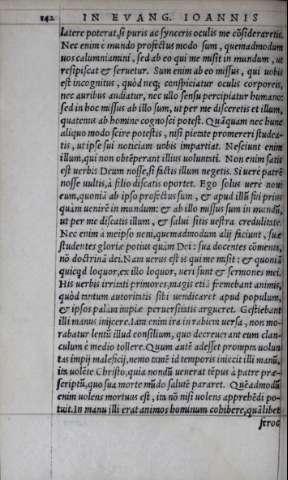 142 IN EVANG. IOANNIS
latere poterat, si puris ac synceris oculis me cõsideraretis.
Nec enim è mundo profectus modo sum, quemadmodum
uos calumniamini, sed ab eo qui me misit in mundum, ut
resipiscat & seruetur. Sum enim ab eo missus, qui uobis
est incognitus, quòd neq; conspiciatur oculis corporeis,
nec auribus audiatur, nec ullo sensu percipiatur humano:
sed in hoc missus ab illo sum, ut per me disceretis et illum,
quatenus ab homine cognosci potest. Quãquam nec hunc
aliquo modo scire potestis, nisi pietate promereri studea-
tis, ut ipse sui noticiam uobis impartiat. Nesciunt enim
illum, qui non obtẽperant illius uoluntati. Non enim satis
est uerbis Deum nosse, si factis illum negetis. Si uerè patrẽ
nosse uultis, à filio discatis oportet. Ego solus uerè noui
eum, quoniã ab ipso profectus sum, & apud illũ fui prius
quàm uenirẽ in mundum: & ab illo missus sum in mundũ,
ut per me discatis illum, & salui sitis uestra credulitate.
Nec enim à meipso ueni, quemadmodum alij faciunt, suæ
studentes gloriæ potius quàm Dei: sua docentes cõmenta,
nõ doctrinã dei. Nam uerus est is qui me misit: & quoniã
quicqd loquor, ex illo loquor, ueri sunt & sermones mei.
His uerbis irritati primores, magis etiã fremebant animis,
quòd tantum autoritatis sibi uendicaret apud populum,
& ipsos palàm impiæ peruersitatis argueret. Gestiebant
illi manus inijcere. Iam enim ira in rabiem uersa, non mo-
rabatur lentũ illud consilium, quo decreuerant eum clan-
culum è medio tollere. Quum autẽ adesset prompta uolun
tas impij maleficij, nemo tamẽ id temporis iniecit illi manũ,
ita uolẽte Christo, quia nondũ uenerat tẽpus à patre præ-
scriptũ, quo sua morte mũdo salutẽ pararet. Quẽadmodũ
enim uolens mortuus est, ita nõ nisi uolens apprehẽdi po-
tuit. In manu illi erat animos hominum cohibere, quãlibet
feroc